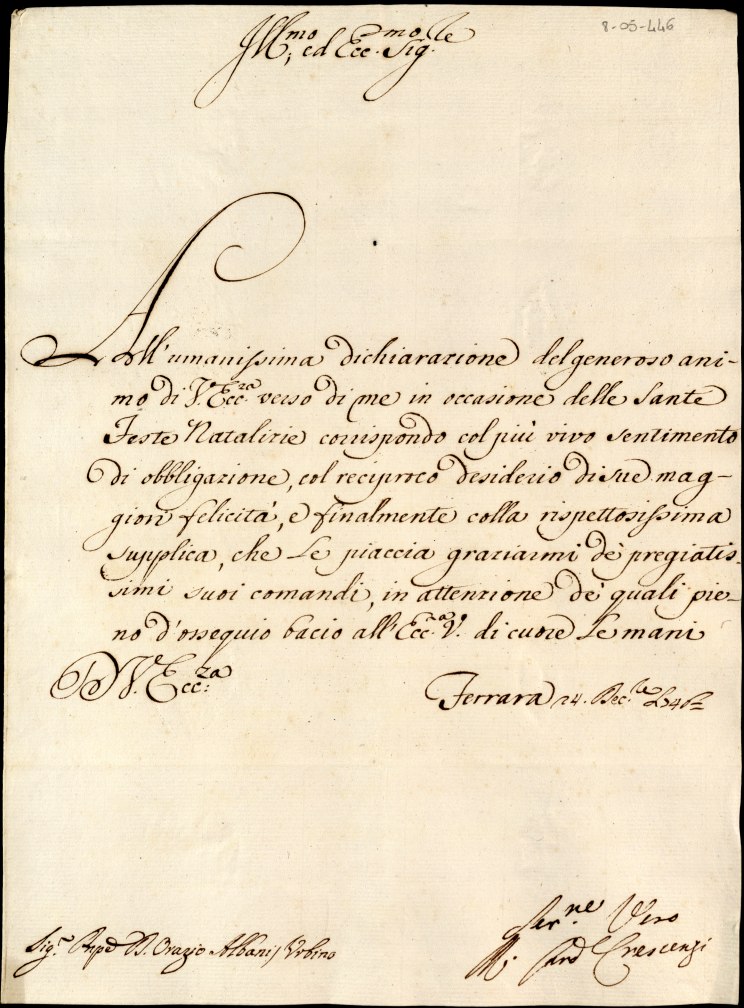 8-05-446
Ill.mo, ed Ecc.mo Sig.re
All'umanissima dichiarazione del generoso ani-
mo di V. Ecc.za verso di me in occasione delle Sante
Feste Natalizie corrispondo col più vivo sentimento
di obbligazione, col reciproco desiderio di sue mag-
giori felicità, e finalmente colla rispettosissima
supplica, che Le piaccia graziarmi de' pregiatis-
simi suoi comandi, in attenzione de' quali pie-
no d'ossequio bacio all'Ecc.a V. di cuore Le mani
Di V. Ecc.za
Ferrara 24. Dec.
Ser.re Vero
Card Crescenzi
Sig.r D. Orazio Albani / Urbino